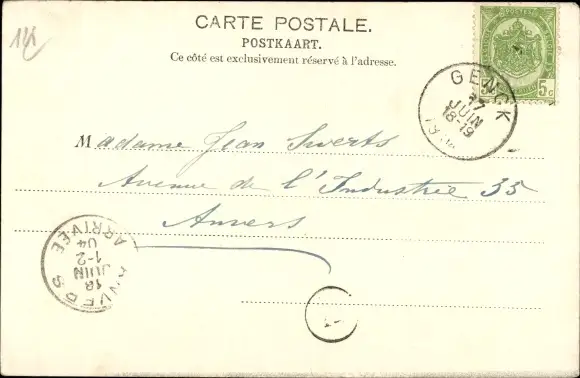 CARTE POSTALE.
POSTKAART.
Ce côté est exclusivement réservé à l'adresse.
5c
GENCK
17
JUIN
18-19
Madame Jean Swerts
Avenue de l'Industrie 35
Anvers
ANVERS
18
JUIN
1-2
04
ARRIVÉE